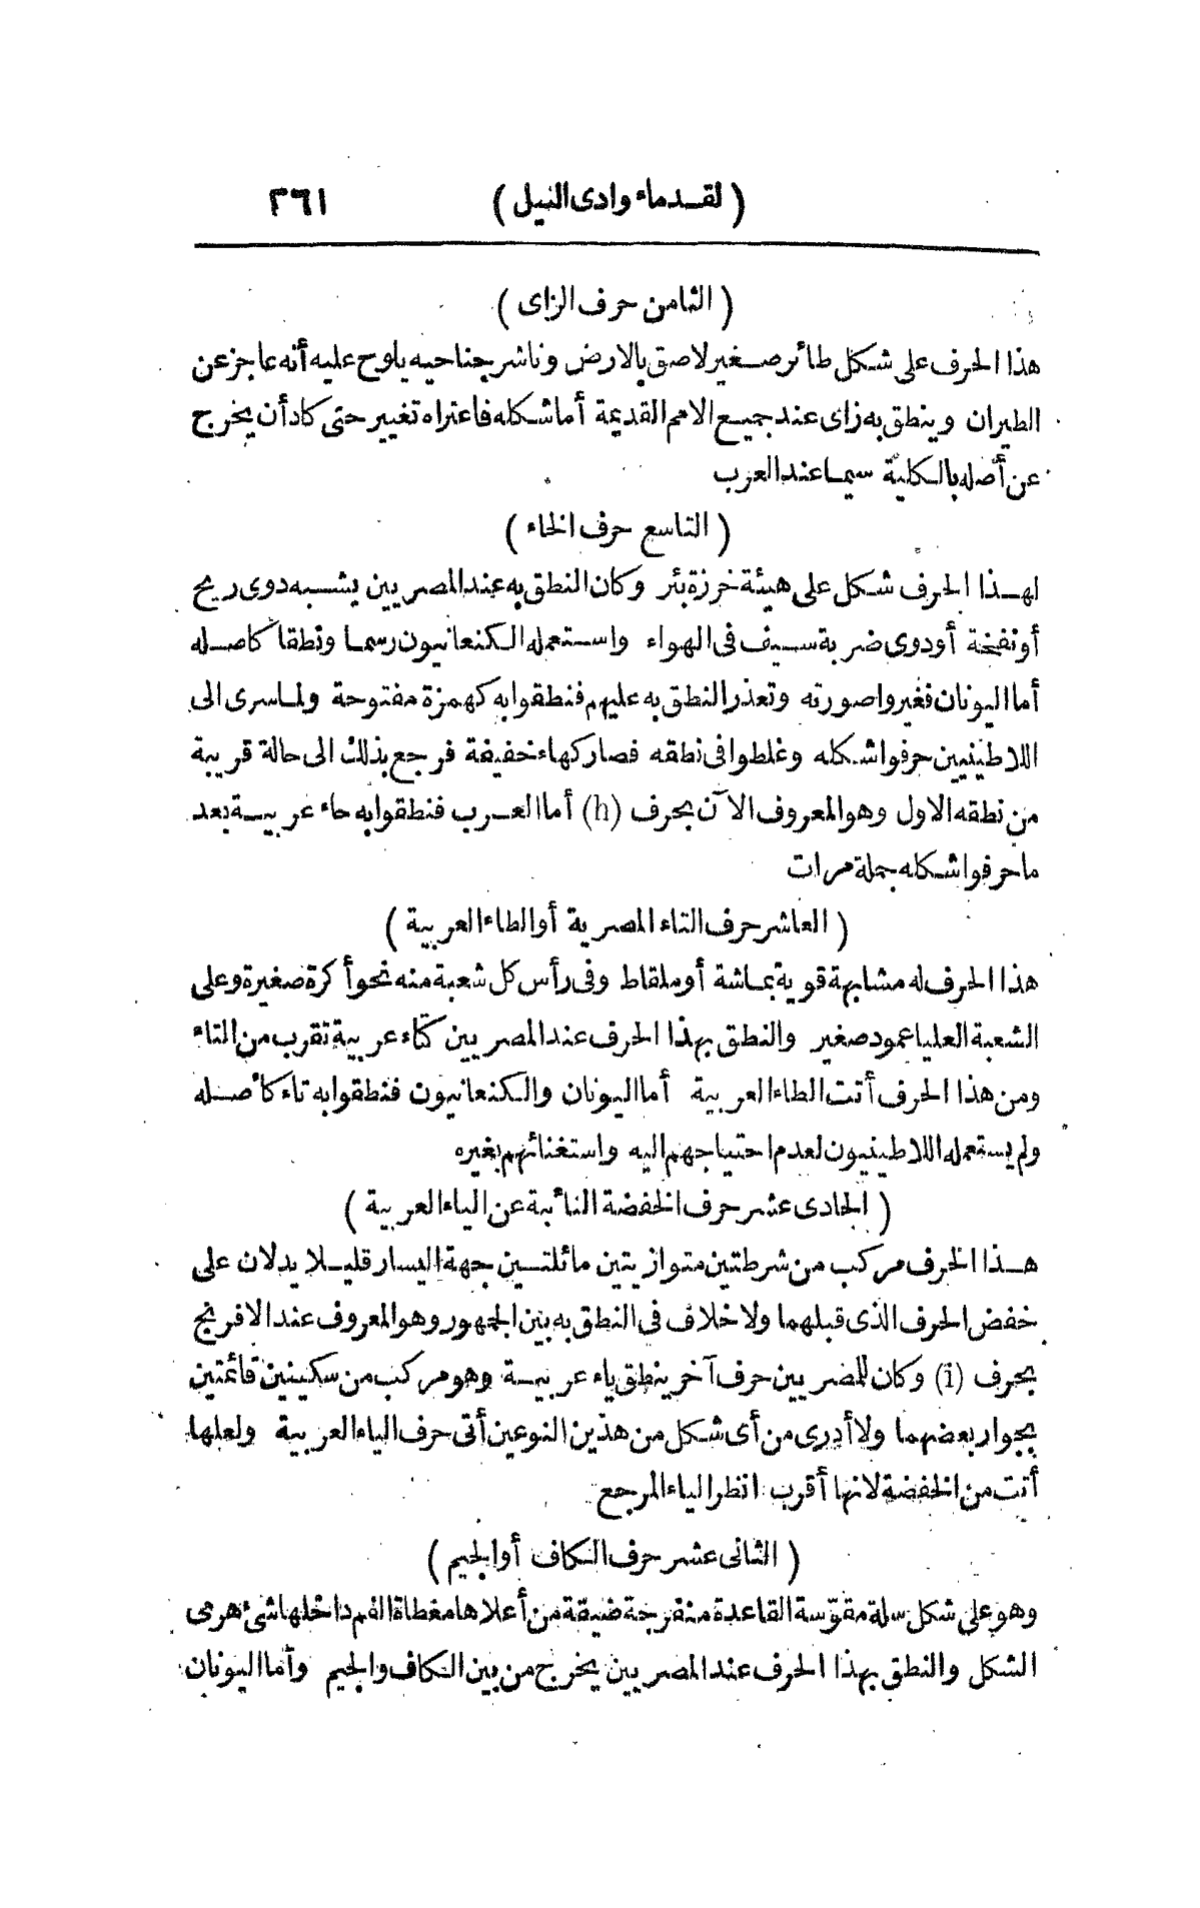 ( لقدماء وادى النيل ) ٣٦١
( الثامن حرف الزاى )
هذا الحرف على شكل طائر صغير لاصق بالارض وناشر جناحيه يلوح عليه أنه عاجز عن
الطيران وينطق به زاى عند جميع الامم القديمة أما شكله فاعتراه تغيير حتى كاد أن يخرج
عن أصله بالكلية سيما عند العرب
( التاسع حرف الخاء )
لهذا الحرف شكل على هيئة خرزة بئر وكان النطق به عند المصريين يشبه دوى ريح
أو نفخة أو دوى ضربة سيف فى الهواء واستعمله الكنعانيون رسما ونطقا كاصله
أما اليونان فغيروا صورته وتعذر النطق به عليهم فنطقوا به كهمزة مفتوحة ولما سرى الى
اللاطينيين حرفوا شكله وغلطوا فى نطقه فصار كهاء خفيفة فرجع بذلك الى حالة قريبة
من نطقه الاول وهو المعروف الآن بحرف (h) أما العرب فنطقوا به حاء عربية بعد
ما حرفوا شكله جملة مرات
( العاشر حرف التاء المصرية أو الطاء العربية )
هذا الحرف له مشابهة قوية بماشة أو ملقاط وفى رأس كل شعبة منه نحو أكرة صغيرة وعلى
الشعبة العليا عمود صغير والنطق بهذا الحرف عند المصريين كتاء عربية تقرب من التاء
ومن هذا الحرف أتت الطاء العربية أما اليونان والكنعانيون فنطقوا به تاء كأصله
ولم يستعمله اللاطينيون لعدم احتياجهم اليه واستغنائهم بغيره
( الحادى عشر حرف الخفضة النائبة عن الياء العربية )
هذا الحرف مركب من شرطتين متوازيتين مائلتين جهة اليسار قليلا يدلان على
خفض الحرف الذى قبلهما ولا خلاف فى النطق به بين الجمهور وهو المعروف عند الافرنج
بحرف (i) وكان للمصريين حرف آخر ينطق ياء عربية وهو مركب من سكينين قائمتين
بجوار بعضهما ولا أدرى من أى شكل من هذين النوعين أتى حرف الياء العربية ولعلها
أتت من الخفضة لانها أقرب انظر الياء المرجع
( الثانى عشر حرف الكاف أو الجيم )
وهو على شكل سلة مقوّسة القاعدة منفرجة ضيقة من أعلاها مغطاة الفم داخلها شئ هرمى
الشكل والنطق بهذا الحرف عند المصريين يخرج من بين الكاف والجيم وأما اليونان